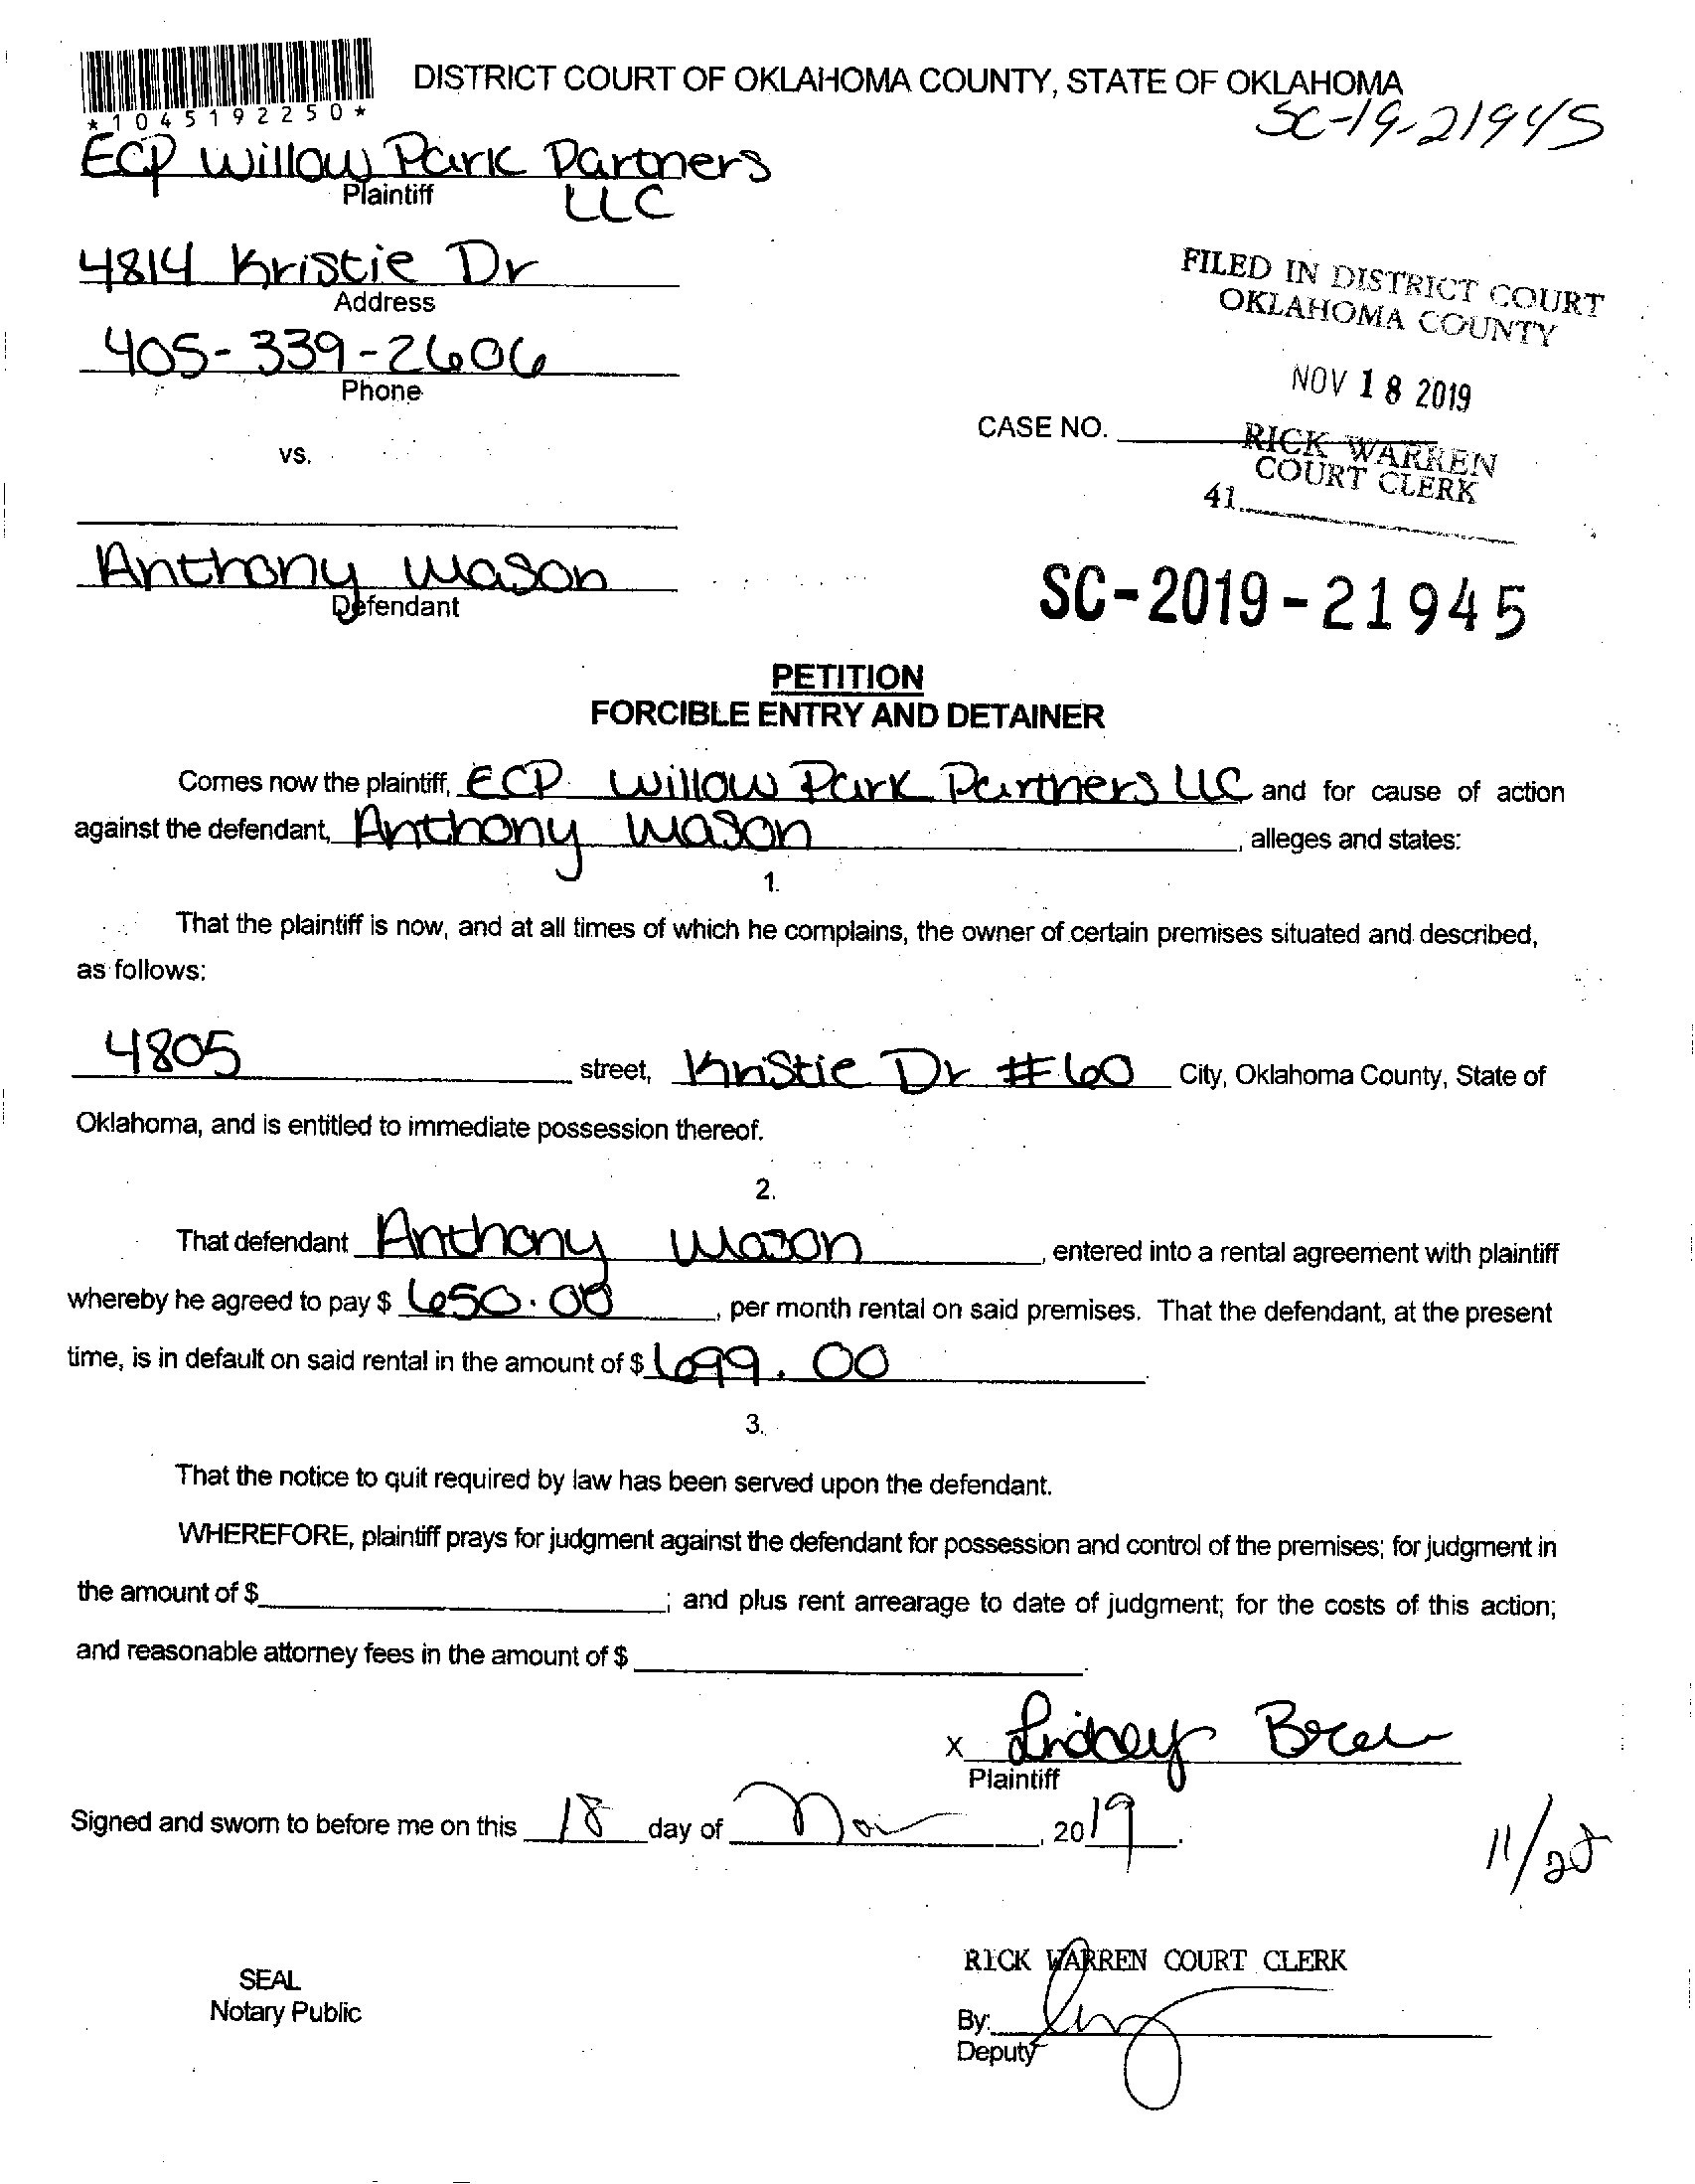 *1045192250*
DISTRICT COURT OF OKLAHOMA COUNTY, STATE OF OKLAHOMA
SC-19-21945
ECP Willow Park Partners
Plaintiff
LLC
4814 Kristie Dr
Address
405-339-2606
Phone
vs.
FILED IN DISTRICT COURT
OKLAHOMA COUNTY
NOV 18 2019
CASE NO.
RICK WARREN
COURT CLERK
41
Anthony Mason
Defendant
SC-2019-21945
PETITION
FORCIBLE ENTRY AND DETAINER
Comes now the plaintiff, ECP Willow Park Partners LLC and for cause of action
against the defendant, Anthony Mason, alleges and states:
1.
That the plaintiff is now, and at all times of which he complains, the owner of certain premises situated and described,
as follows:
4805 street, Kristie Dr #60 City, Oklahoma County, State of
Oklahoma, and is entitled to immediate possession thereof.
2.
That defendant Anthony Mason, entered into a rental agreement with plaintiff
whereby he agreed to pay $ 650.00, per month rental on said premises. That the defendant, at the present
time, is in default on said rental in the amount of $ 699.00
3.
That the notice to quit required by law has been served upon the defendant.
WHEREFORE, plaintiff prays for judgment against the defendant for possession and control of the premises; for judgment in
the amount of $ ; and plus rent arrearage to date of judgment; for the costs of this action;
and reasonable attorney fees in the amount of $ .
x Lindsey
Plaintiff
Signed and sworn to before me on this 18 day of Nov, 2019.
SEAL
Notary Public
RICK WARREN COURT CLERK
By:
Deputy